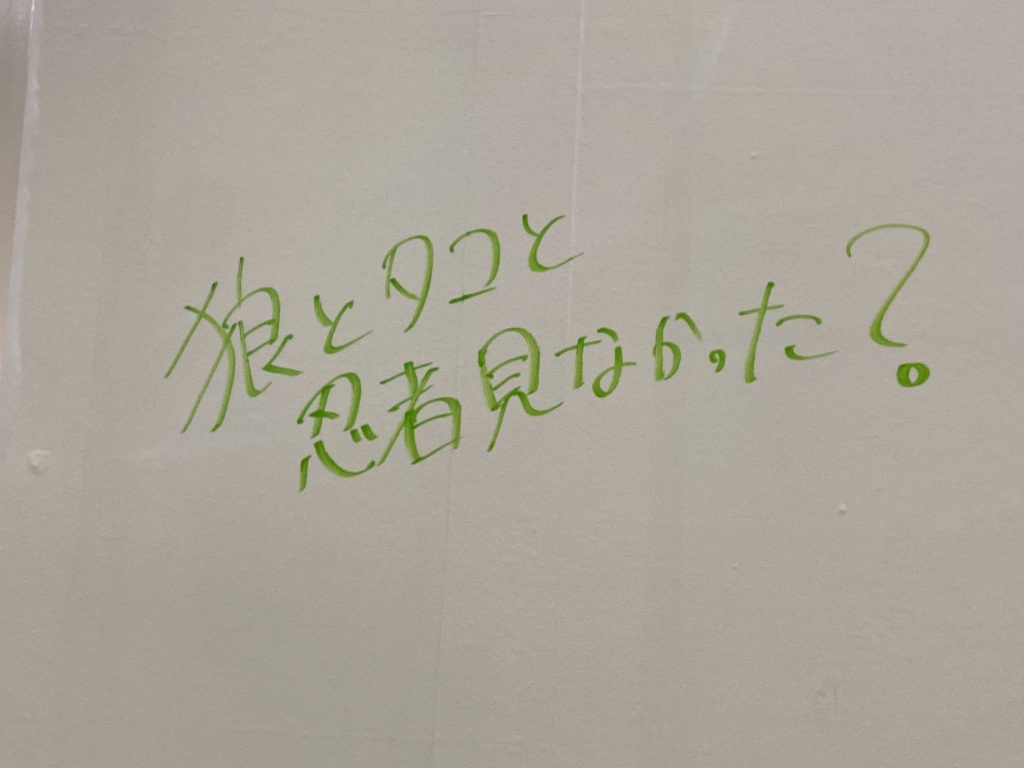 狼とタコと
忍者見なかった?